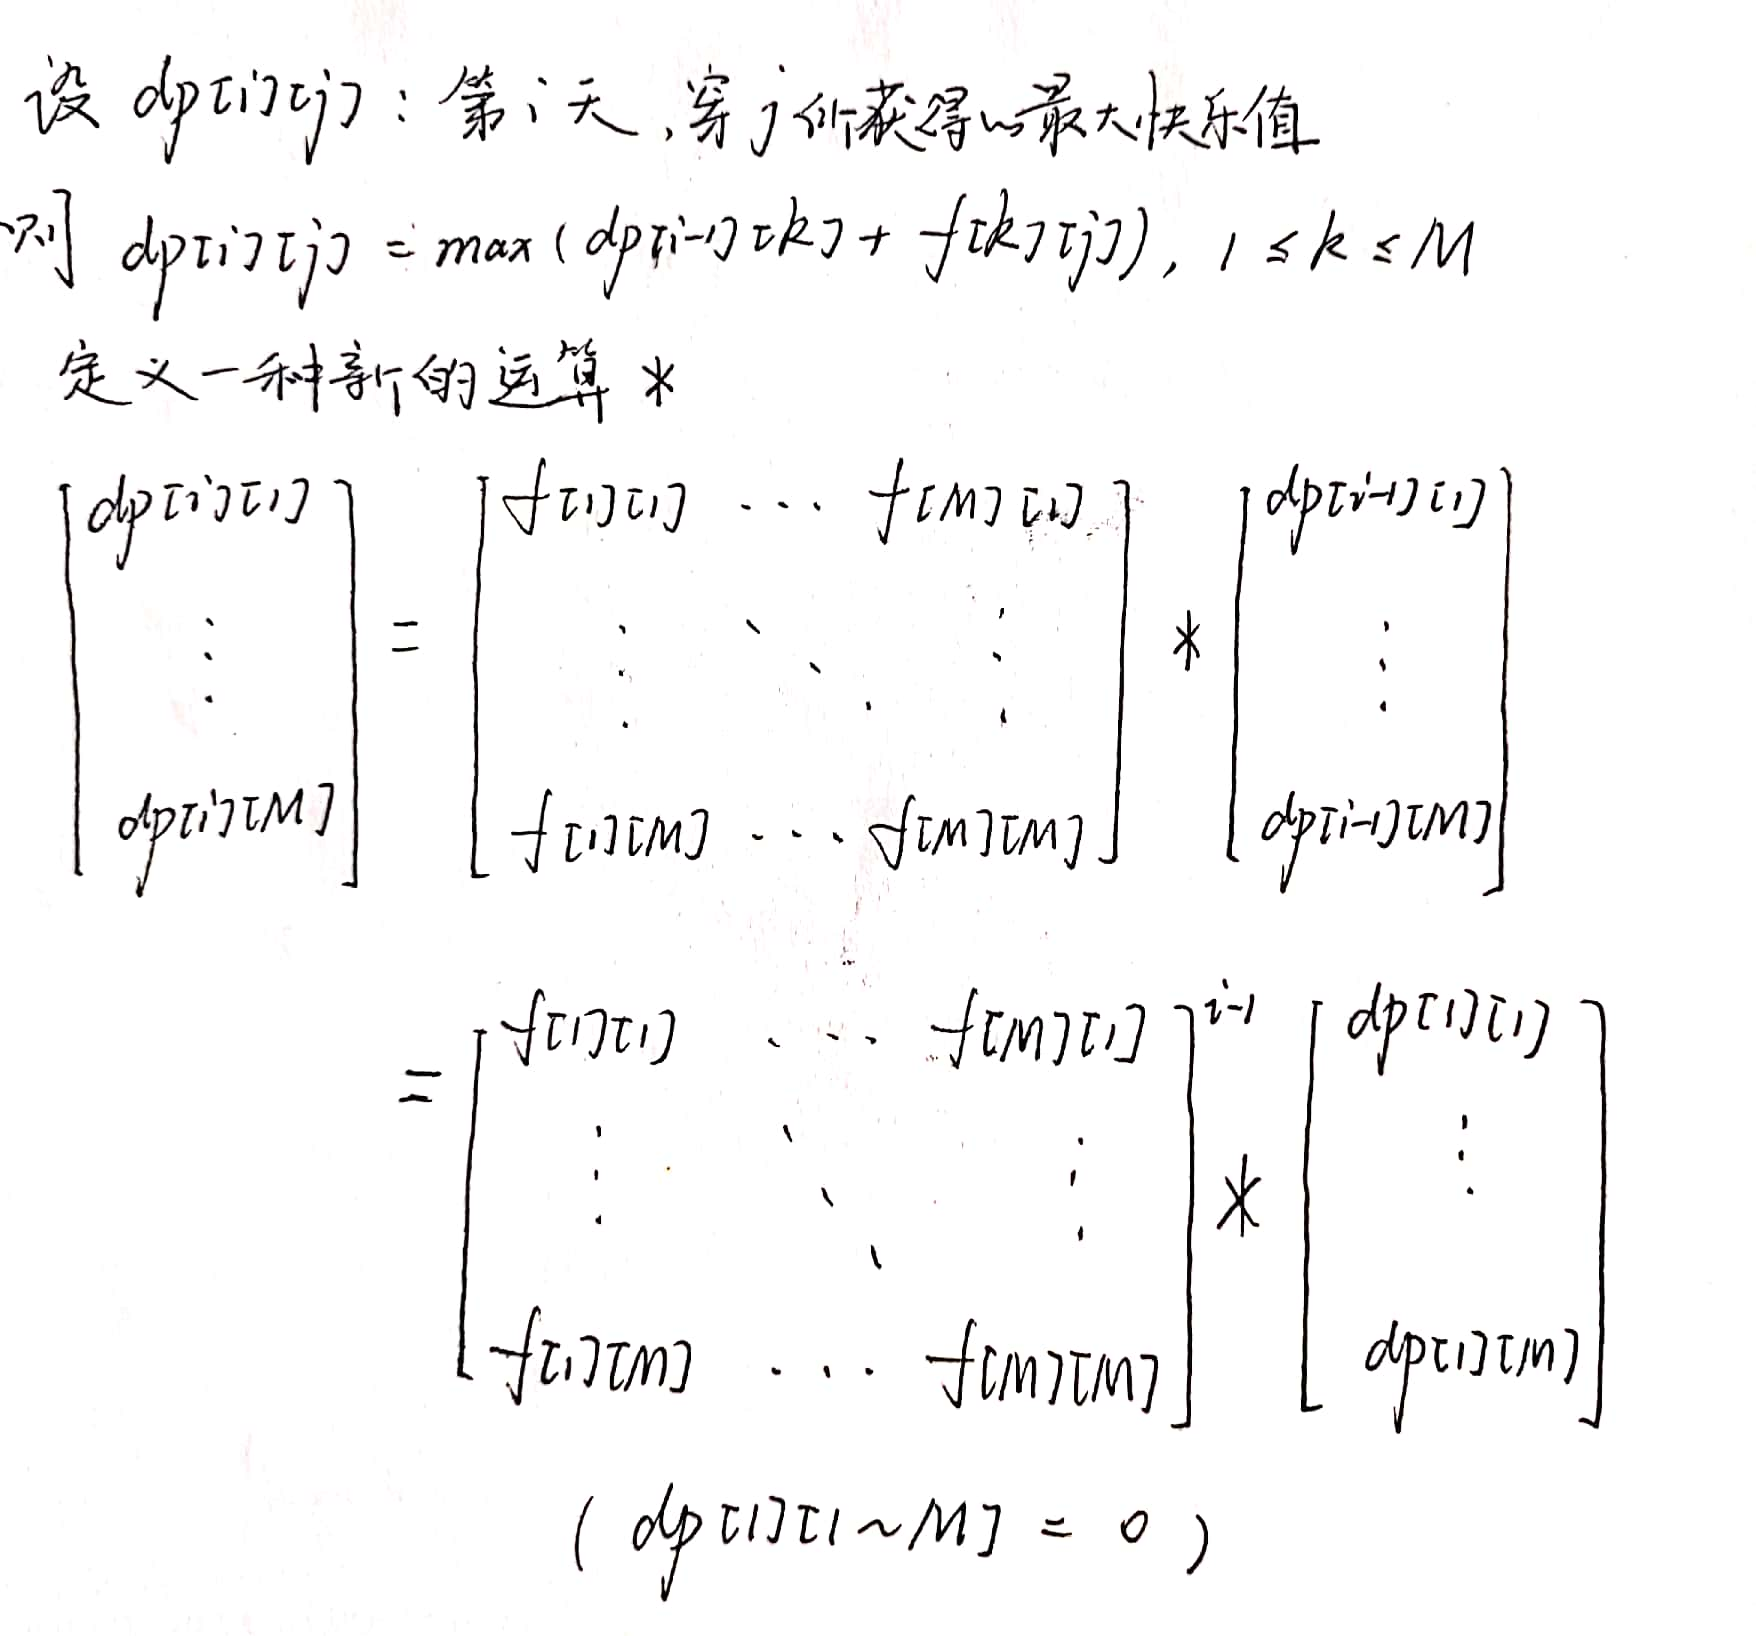 设 dp[i][j]：第i天，穿j所获得的最大快乐值
则 dp[i][j] = max(dp[i-1][k] + f[k][j]), 1 ≤ k ≤ M
定义一种新的运算 *
[dp[i][1] ⋮ dp[i][M]] = [f[1][1] ... f[M][1] ⋮ ⋱ ⋮ f[1][M] ... f[M][M]] * [dp[i-1][1] ⋮ dp[i-1][M]]
= [f[1][1] ... f[M][1] ⋮ ⋱ ⋮ f[1][M] ... f[M][M]]^{i-1} * [dp[1][1] ⋮ dp[1][M]]
(dp[1][1~M] = 0)